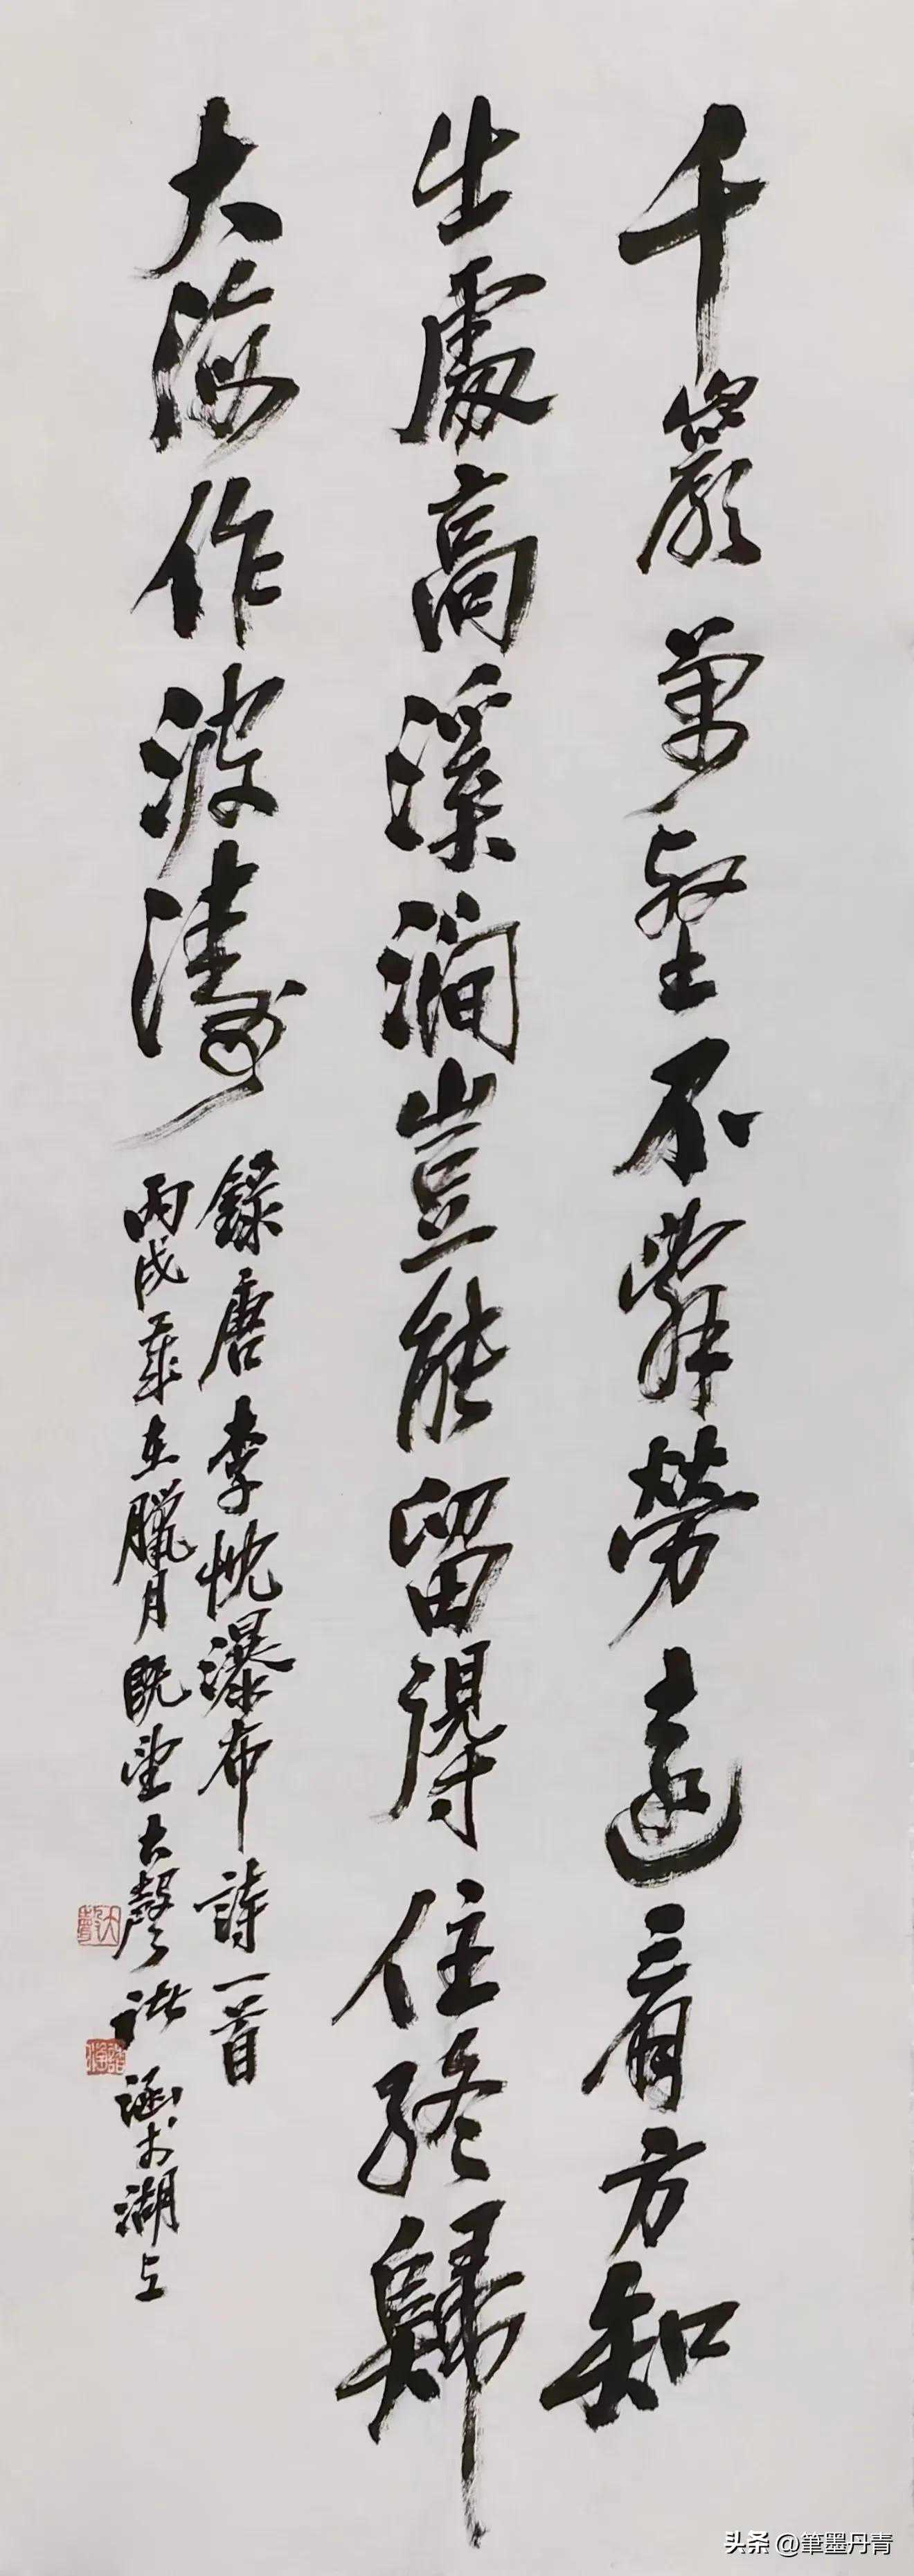 千巖萬壑不辭勞遠看方知
出處高溪澗豈能留得住終歸
大海作波濤
錄唐李忱瀑布詩一首
丙戌歲在臘月既望大聲諸涵於湖上
头条 @筆墨丹青